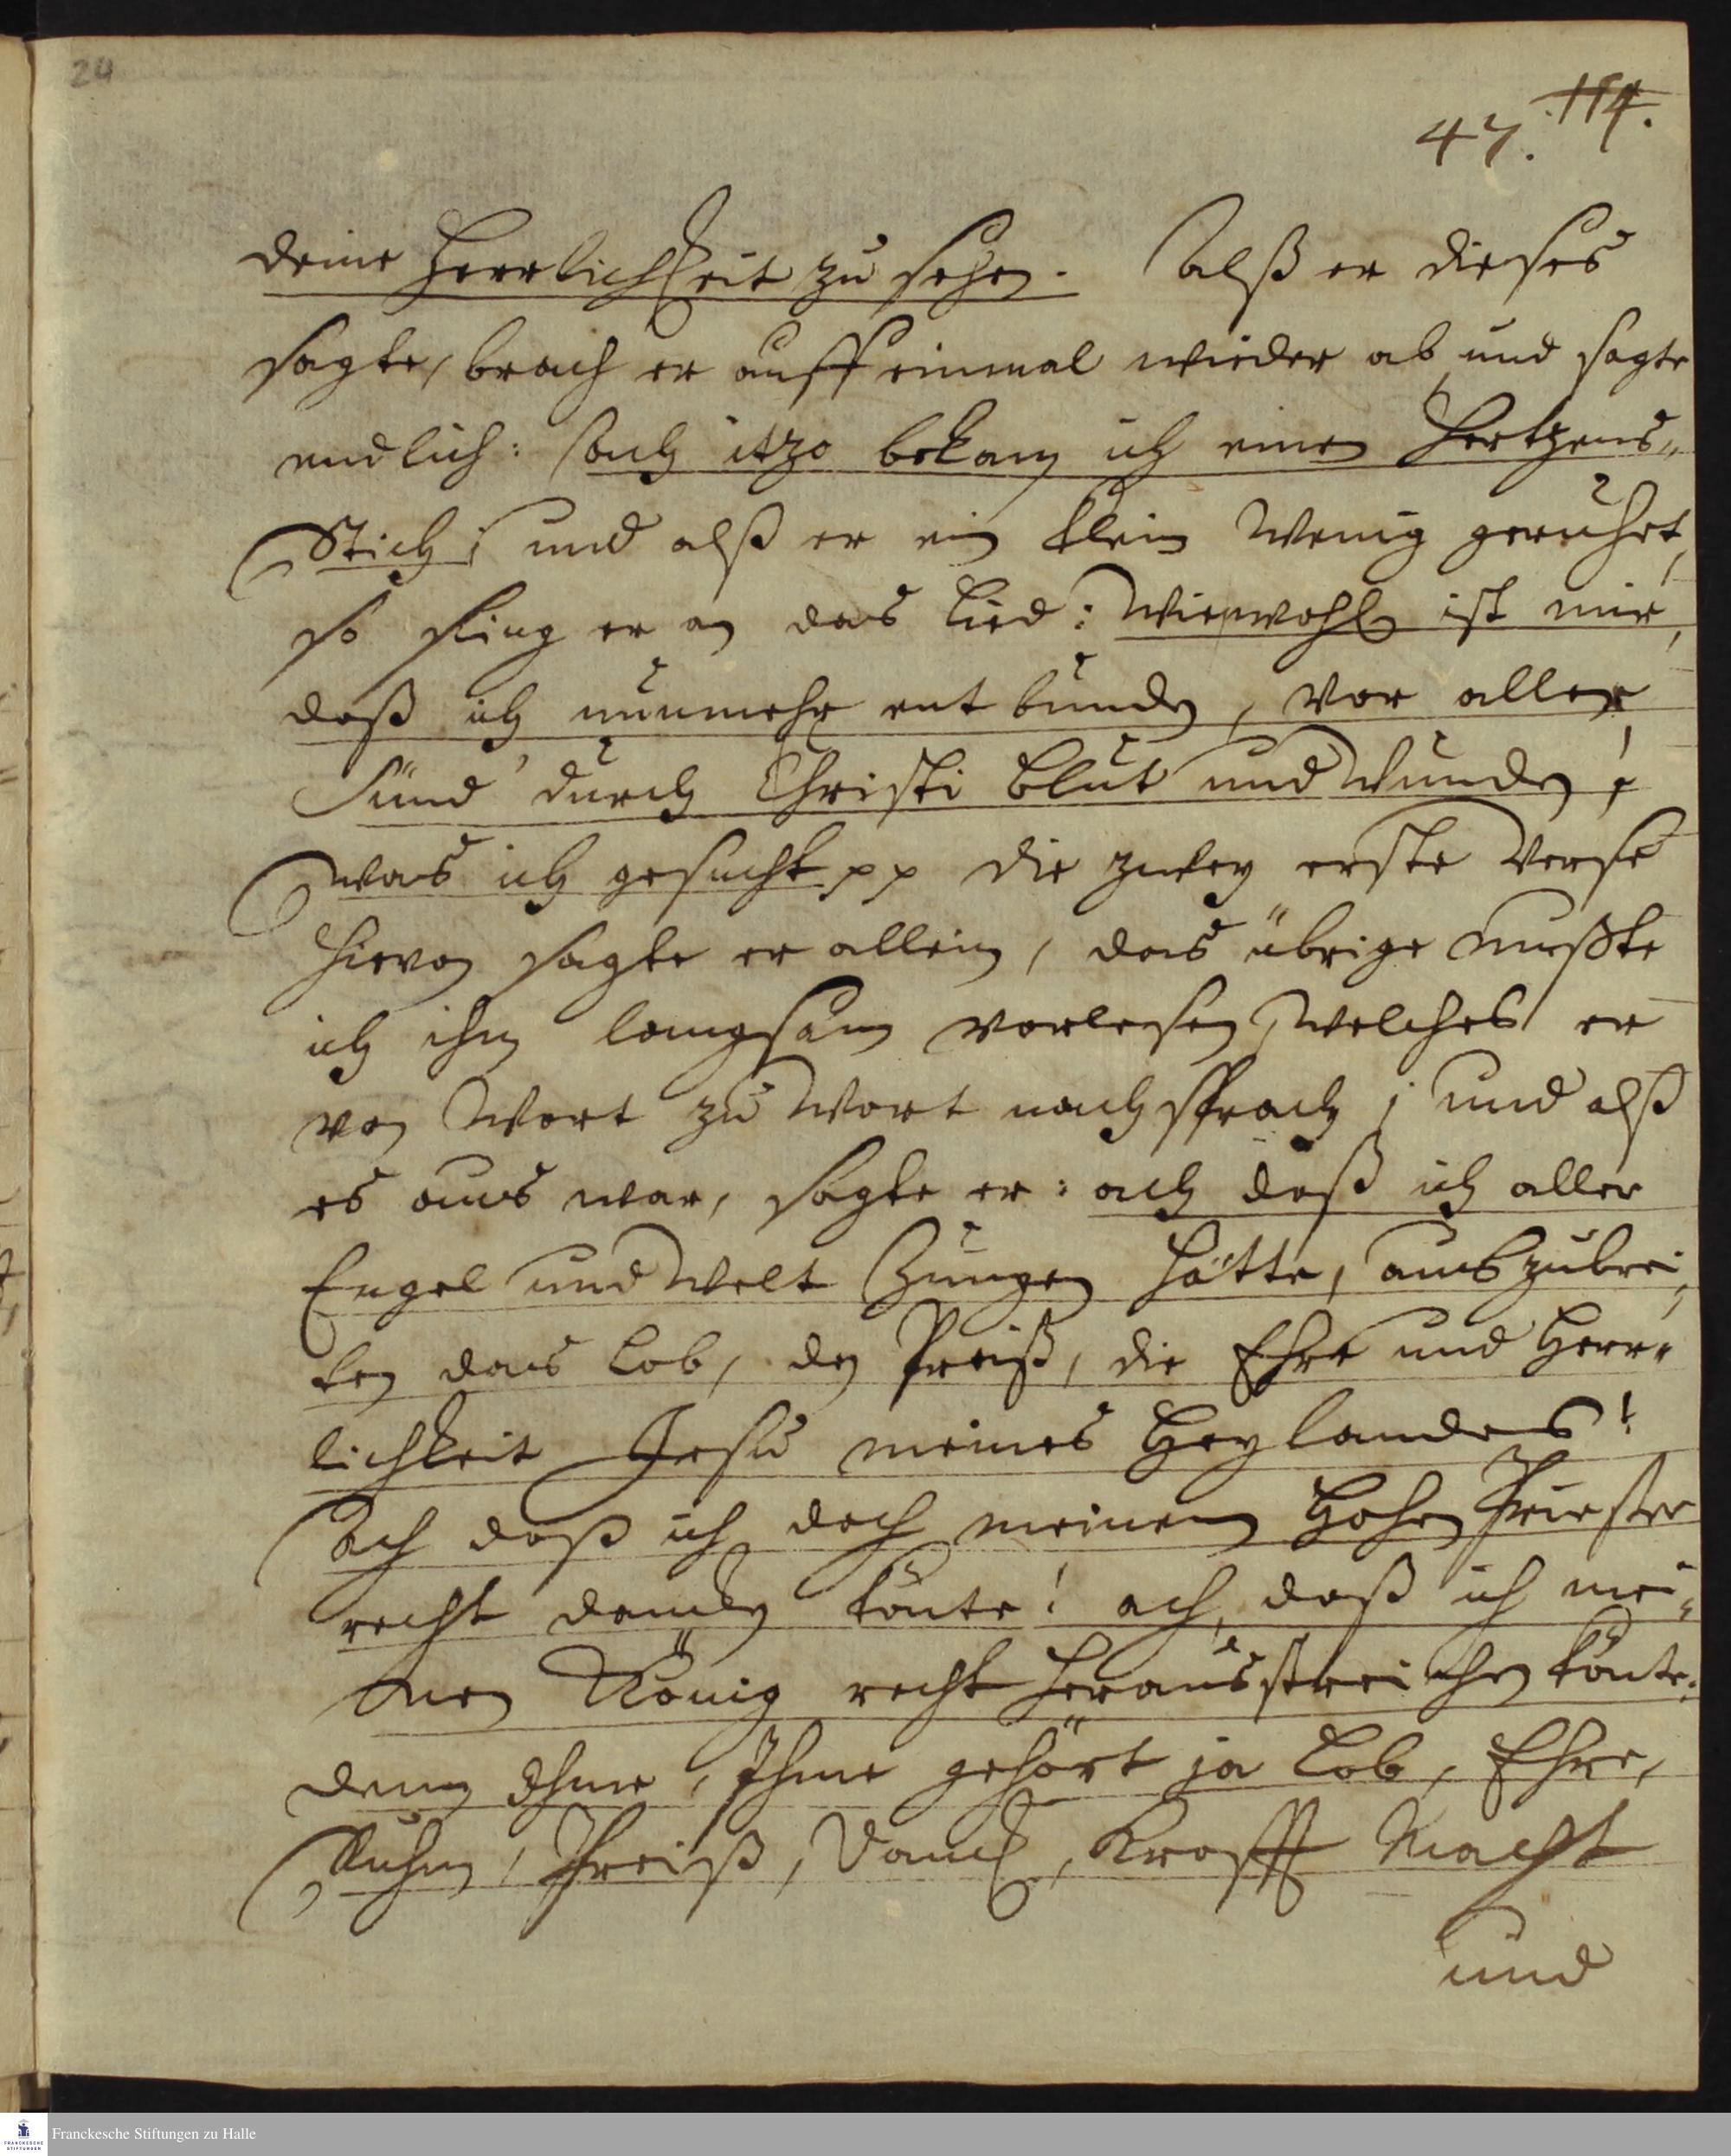 24
114.
47.
deine Herrlichkeit zu sehen. Alß er dieses
sagte, brach er auff einmal wieder ab und sagte
endlich: Ach itzo bekam ich einen Hertzens-
Stich; und alß er ein klein wenig geruhet,
so fing er an das Lied: Wie wohl ist mir,
daß ich nunmehr entbunden, von aller
Sünd durch Christi Blut und Wunden;
was ich gesucht pp die zwey erste Verse
hievon sagte er allein, das übrige mußte
ich ihm langsam vorlesen, welches er
von Wort zu Wort nachsprach; und alß
es aus war, sagte er: ach daß ich aller
Engel und Welt Zungen hätte, auszubrei-
ten das Lob, den Preiß, die Ehre und Herr-
lichkeit Jesu meines Heylandes!
Ach daß ich doch meinem Hohen Priester
recht dancken könte! ach, daß ich mei-
nen König recht herausstreichen könte.
denn Ihme, Ihme gehört ja Lob, Ehre,
Ruhm, Preiß, Danck, Krafft Macht
und
Franckesche Stiftungen zu Halle